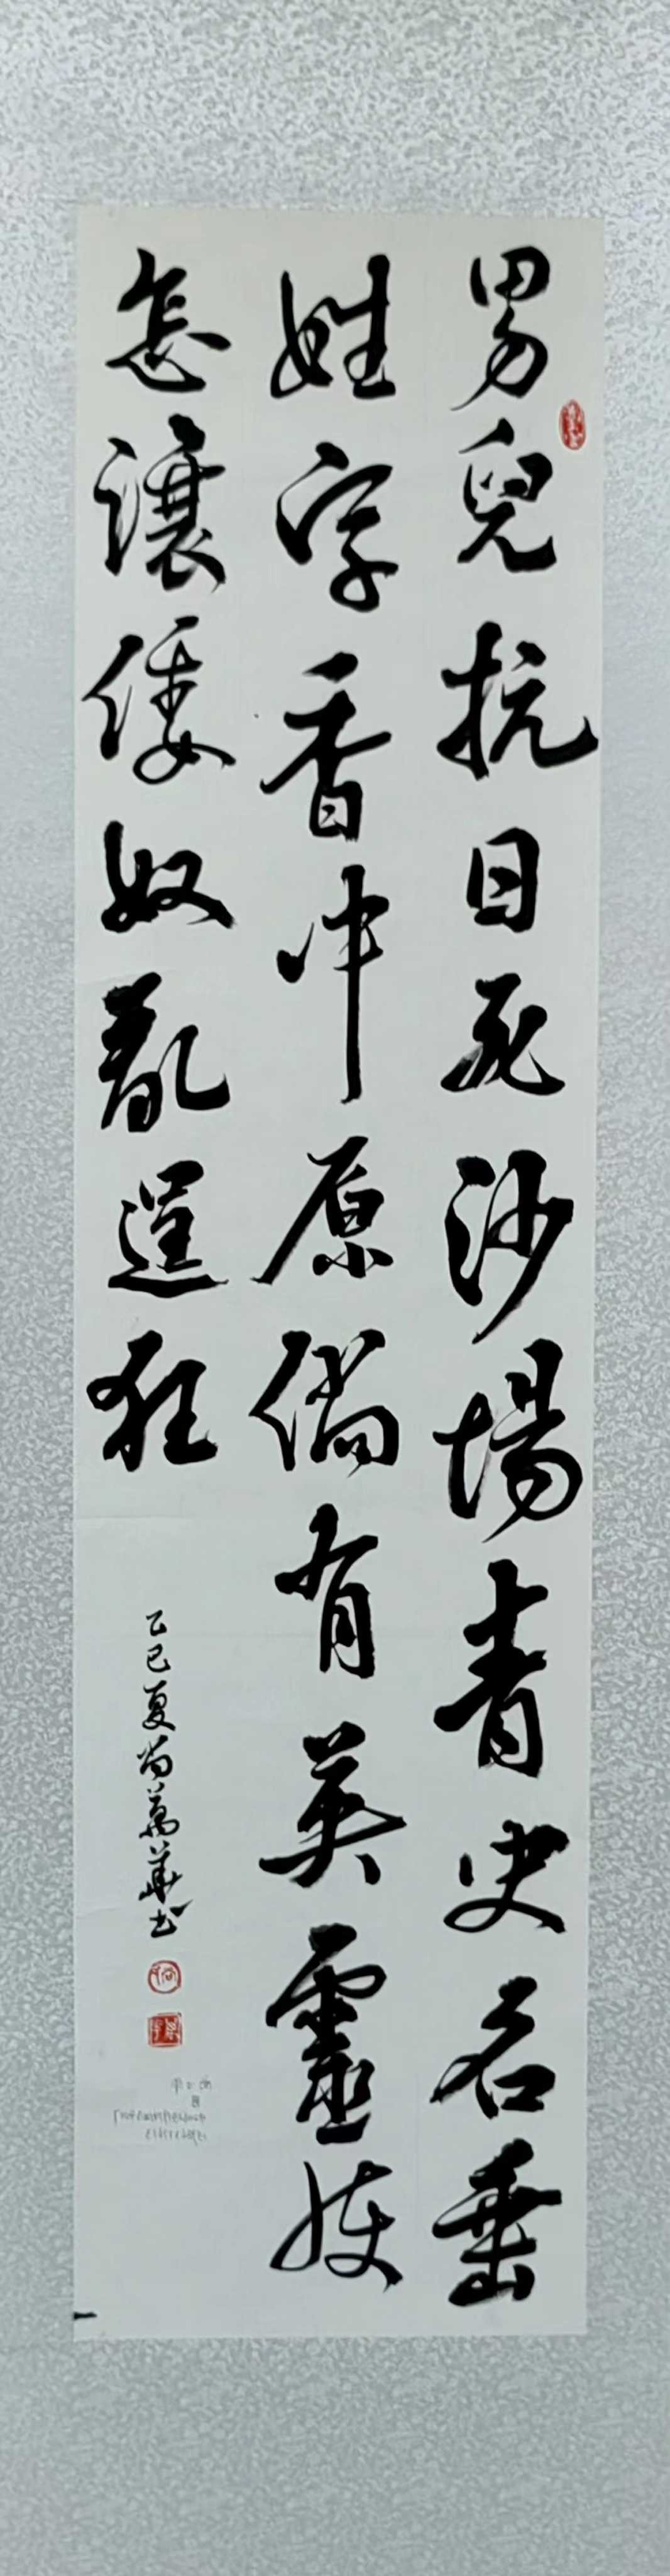 男兒抗日死沙場青史名垂
姓字香中原倘有英靈妓
怎讓倭奴亂逞狂
乙巳夏尚萬華书